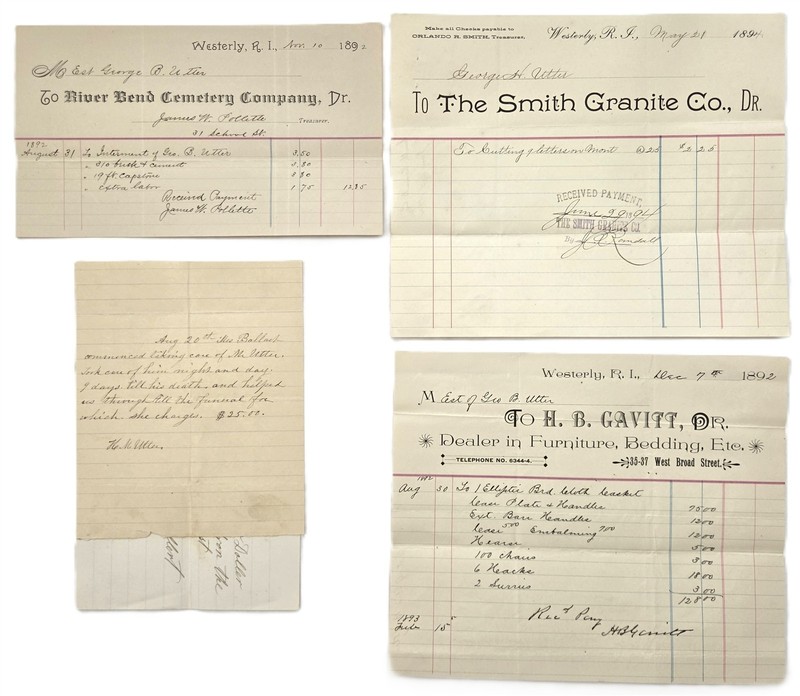 Westerly, R. I., Nov. 10 1892
M Est George B. Utter
To River Bend Cemetery Company, Dr.
James W. Pollette
Treasurer.
31 School St.
1892
August 31 To Interment of Geo. B. Utter 3.50
" 910 brick & cement
" 19 ft. Capstone
" extra labor 1 75
Received Payment
James W. Pollette
Make all Checks payable to
ORLANDO R. SMITH, Treasurer.
Westerly, R. I., May 21 1894
George H. Utter
To The Smith Granite Co., Dr.
To Cutting 9 letters on Mont @25 $2 25
RECEIVED PAYMENT,
June 9 1894
THE SMITH GRANITE CO.
By
Aug 20th Mrs Ballast
commenced taking care of Mr. Utter.
Took care of him night and day.
9 days till his death and helped
us through till the funeral for
which she charges. $25.00.
Utter.
Dollar
from the
Westerly, R. I., Dec 7th 1892
M Est of Geo B. Utter
To H. B. GAVITT, DR.
Dealer in Furniture, Bedding, Etc.
TELEPHONE NO. 6344-4.
35-37 West Broad Street.
1892
Aug 30 To 1 Elliptic Brd Cloth Casket
Case Plate & Handles 75 00
Ext. Barr Handles 12 00
Case 5 00 Embalming 7 00 12 00
Hearse 5 00
100 chairs 3 00
6 Hacks 18 00
2 Surries 3 00
128 00
Rec'd Pay
1893
Feb 15
H B Gavitt